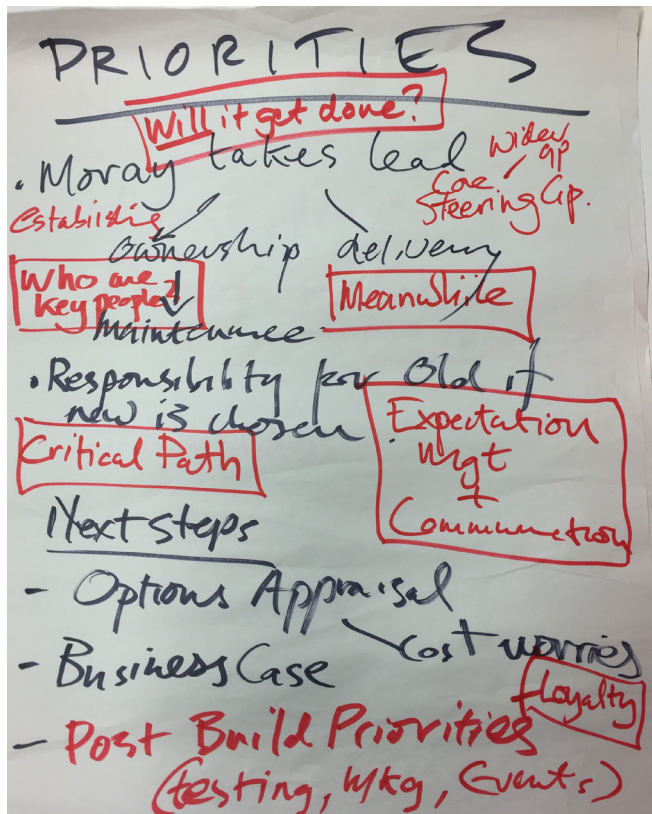 PRIORITIES
Will it get done?
• Moray takes lead
Wider gp
Core Steering Gp.
Establishing
ownership delivery
Who are key people?
Meanwhile
Maintenance
• Responsibility for Old if
new is chosen.
Expectation
Mgt
+
Communication
Critical Path
Next steps
- Options Appraisal
cost worries
- Business Case
+Loyalty
- Post Build Priorities
(testing, Mkg, Events)